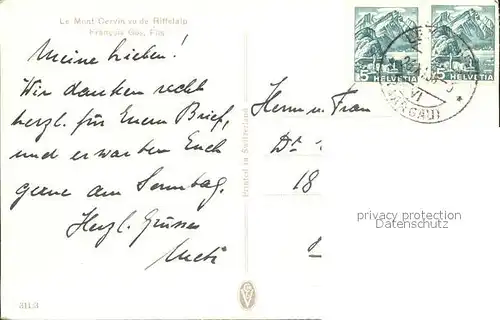 Le Mont Cervin vu de Riffelalp
François Gos, Fils
Meine Lieben!
Wir danken recht
herzl. für Euern Brief,
und erwarten Euch
gerne am Sonntag.
Herzl. Grüsse
Herrn u. Frau
Dr
18
Printed in Switzerland
5 HELVETIA
HELVETIA
VI
(AARGAU)
privacy protection
Datenschutz
3113